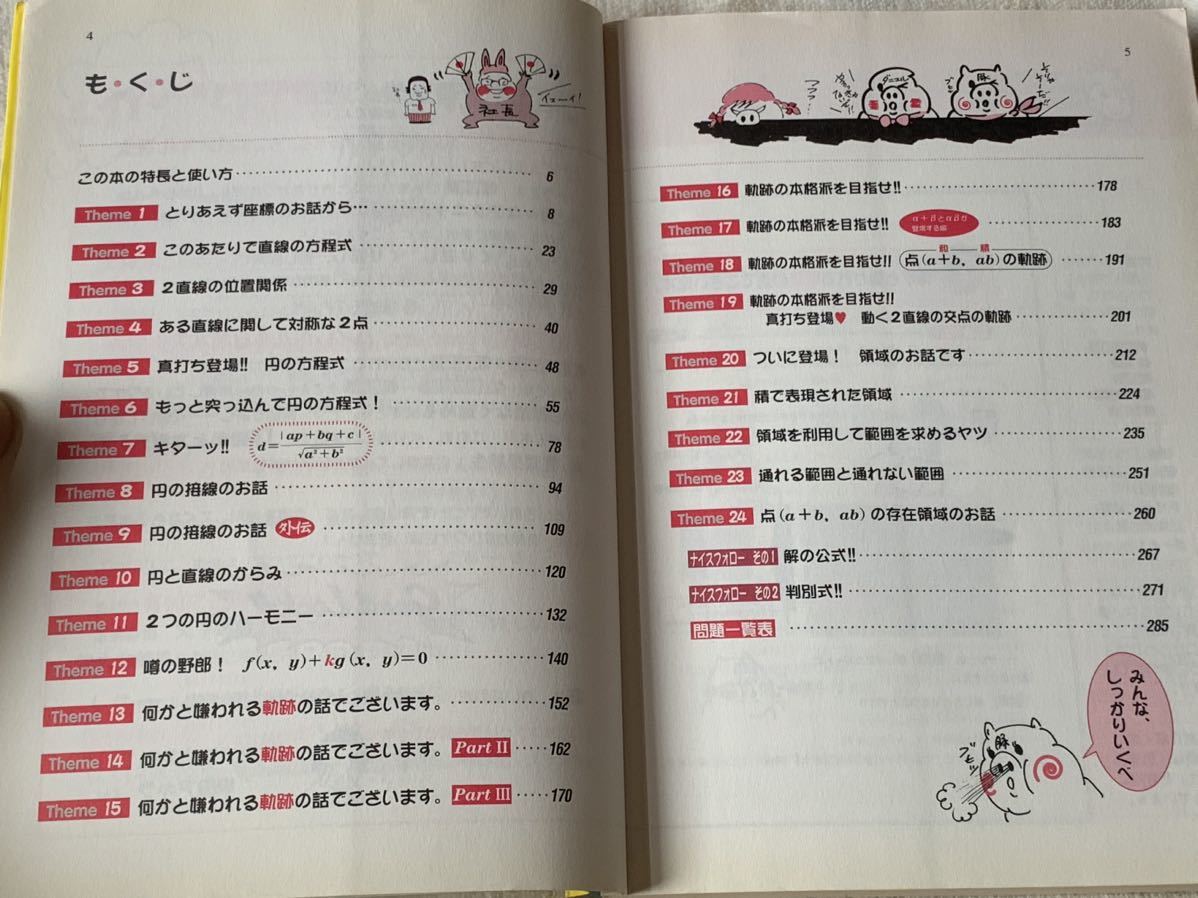 4
も・く・じ
社長
イェーイ!
この本の特長と使い方 6
Theme 1 とりあえず座標のお話から… 8
Theme 2 このあたりで直線の方程式 23
Theme 3 2直線の位置関係 29
Theme 4 ある直線に関して対称な2点 40
Theme 5 真打ち登場!! 円の方程式 48
Theme 6 もっと突っ込んで円の方程式! 55
Theme 7 キターッ!! d=|ap+bq+c|/√a²+b² 78
Theme 8 円の接線のお話 94
Theme 9 円の接線のお話 外伝 109
Theme 10 円と直線のからみ 120
Theme 11 2つの円のハーモニー 132
Theme 12 噂の野郎! f(x, y)+kg(x, y)=0 140
Theme 13 何かと嫌われる軌跡の話でございます。 152
Theme 14 何かと嫌われる軌跡の話でございます。 Part II 162
Theme 15 何かと嫌われる軌跡の話でございます。 Part III 170
5
ダニエル
豚
Theme 16 軌跡の本格派を目指せ!! 178
Theme 17 軌跡の本格派を目指せ!! α+βとαβが登場する編 183
和 積
Theme 18 軌跡の本格派を目指せ!! 点(a+b, ab)の軌跡 191
Theme 19 軌跡の本格派を目指せ!!
真打ち登場♥ 動く2直線の交点の軌跡 201
Theme 20 ついに登場! 領域のお話です 212
Theme 21 積で表現された領域 224
Theme 22 領域を利用して範囲を求めるヤツ 235
Theme 23 通れる範囲と通れない範囲 251
Theme 24 点(a+b, ab)の存在領域のお話 260
ナイスフォロー その1 解の公式!! 267
ナイスフォロー その2 判別式!! 271
問題一覧表 285
みんな、
しっかりいくべ
豚
ブヒッ